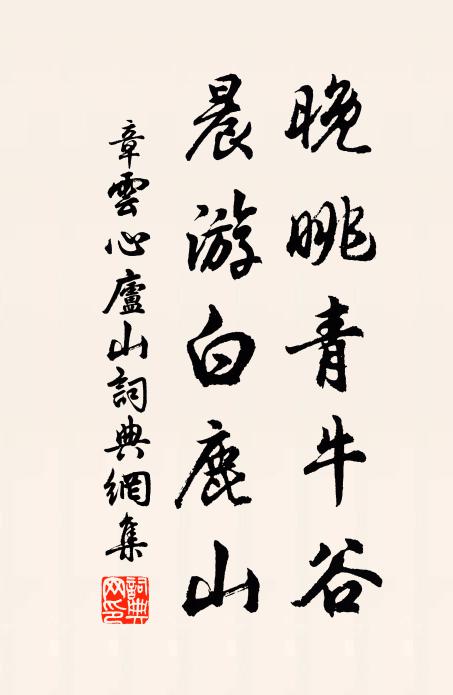 晚眺青牛谷
晨游白鹿山
章雲心廬山詞典網集
詞典網印